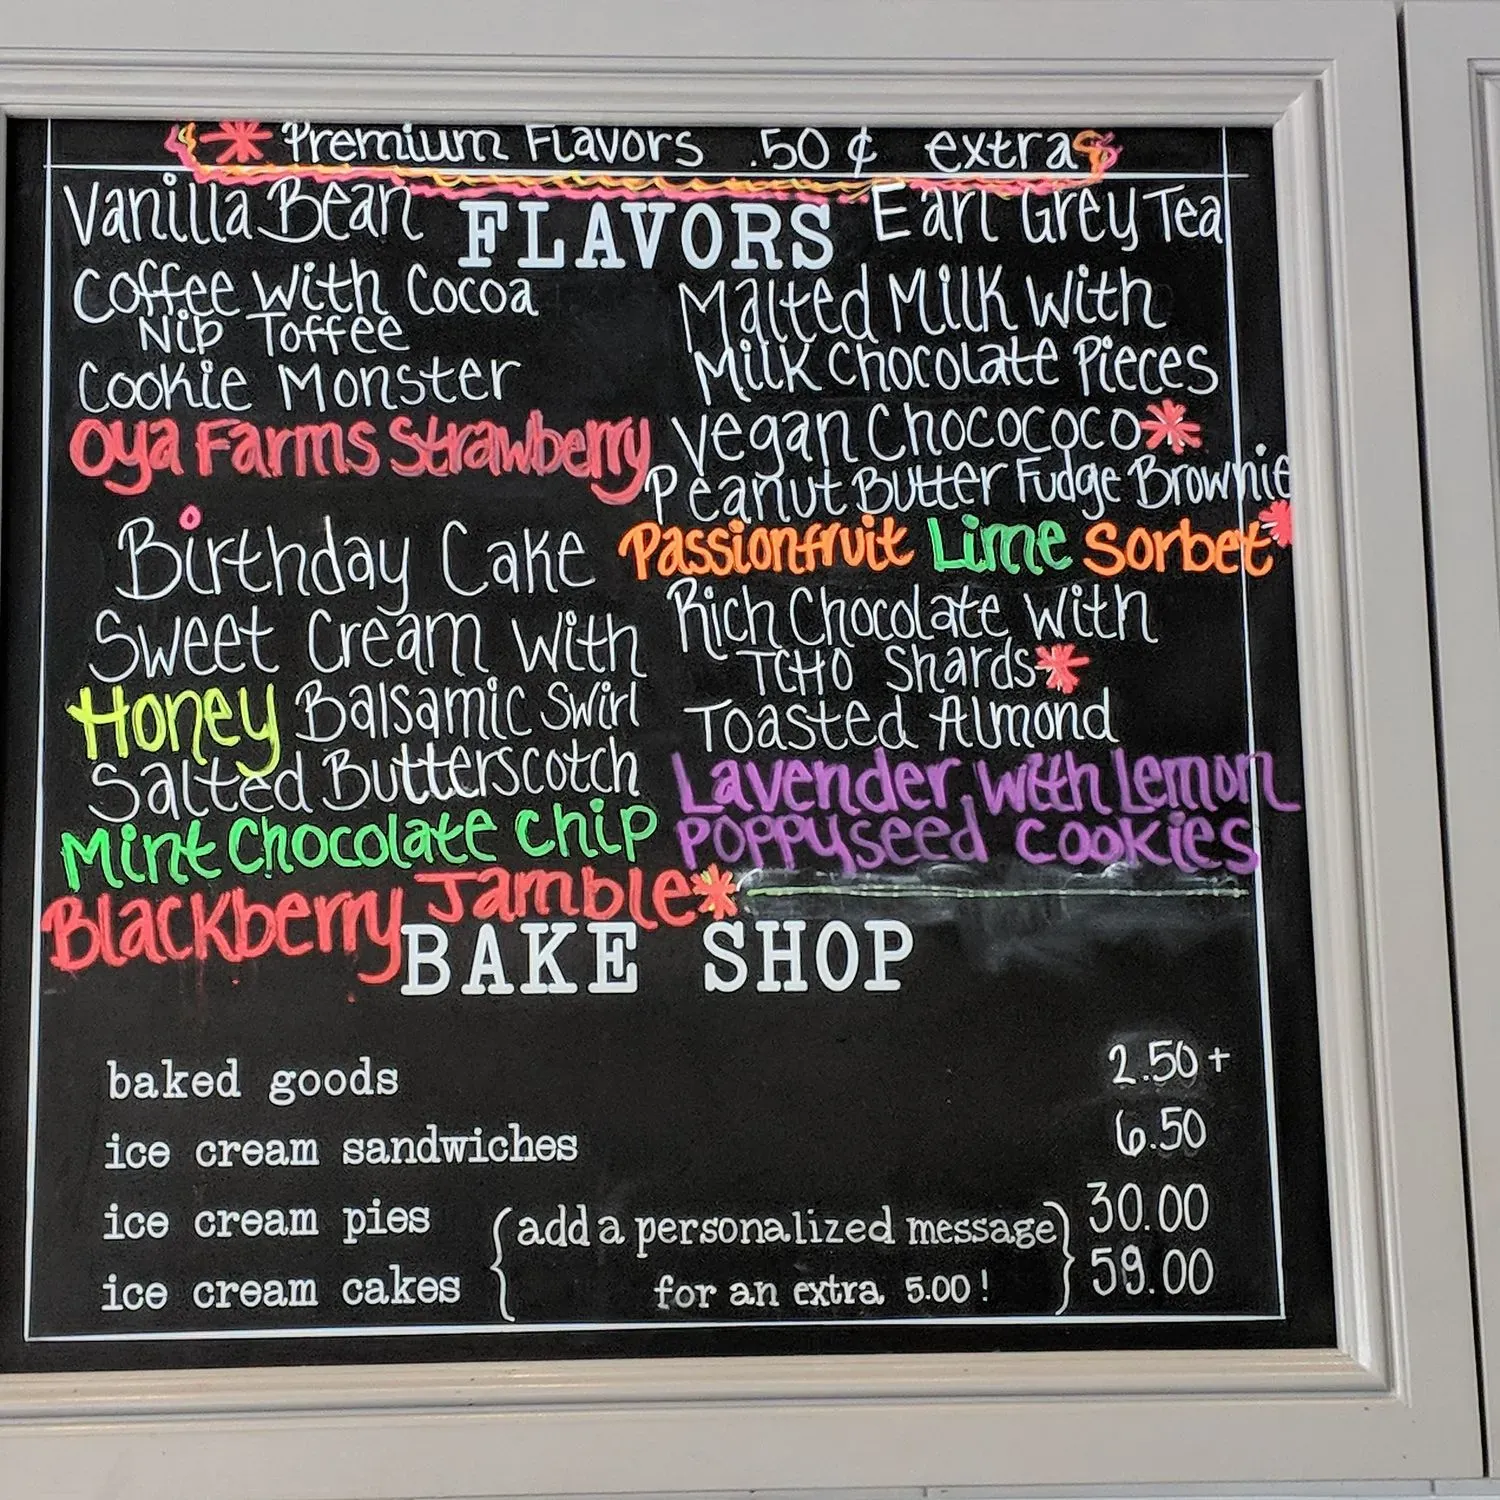 * Premium Flavors .50 ¢ extra
FLAVORS
Vanilla Bean
Coffee With Cocoa
Nib Toffee
Cookie Monster
Oya Farms Strawberry
Birthday Cake
Sweet Cream With
Honey Balsamic Swirl
Salted Butterscotch
Mint Chocolate Chip
Blackberry Jamble*
Earl Grey Tea
Malted Milk With
Milk Chocolate Pieces
Vegan Chocococo*
Peanut Butter Fudge Brownie
Passionfruit Lime Sorbet*
Rich Chocolate With
TCHO Shards*
Toasted Almond
Lavender With Lemon
Poppyseed Cookies
BAKE SHOP
baked goods 2.50+
ice cream sandwiches 6.50
ice cream pies (add a personalized message) 30.00
ice cream cakes { for an extra 5.00! } 59.00